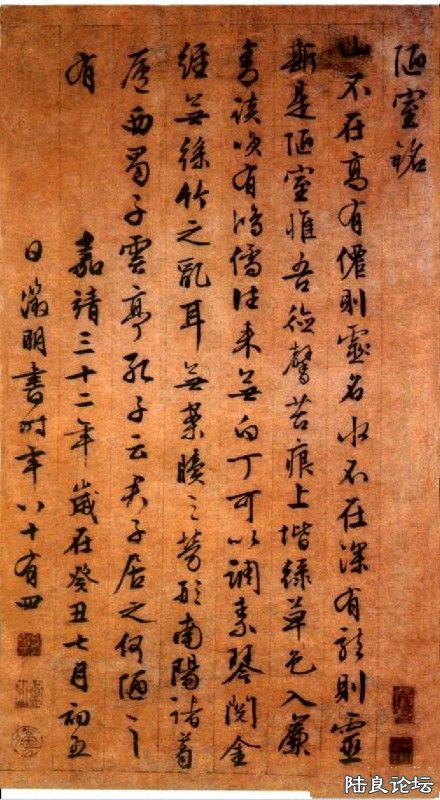 陋室銘
山不在高有僊則靈名水不在深有龍則靈
斯是陋室惟吾德馨苔痕上堦綠草色入簾
青談咲有鴻儒往来無白丁可以調素琴閱金
經無絲竹之亂耳無案牘之勞形南陽諸葛
廬西蜀子雲亭孔子云君子居之何陋之
有
嘉靖三十二年歲在癸丑七月初五
日徵明書時年八十有四
陆良论坛